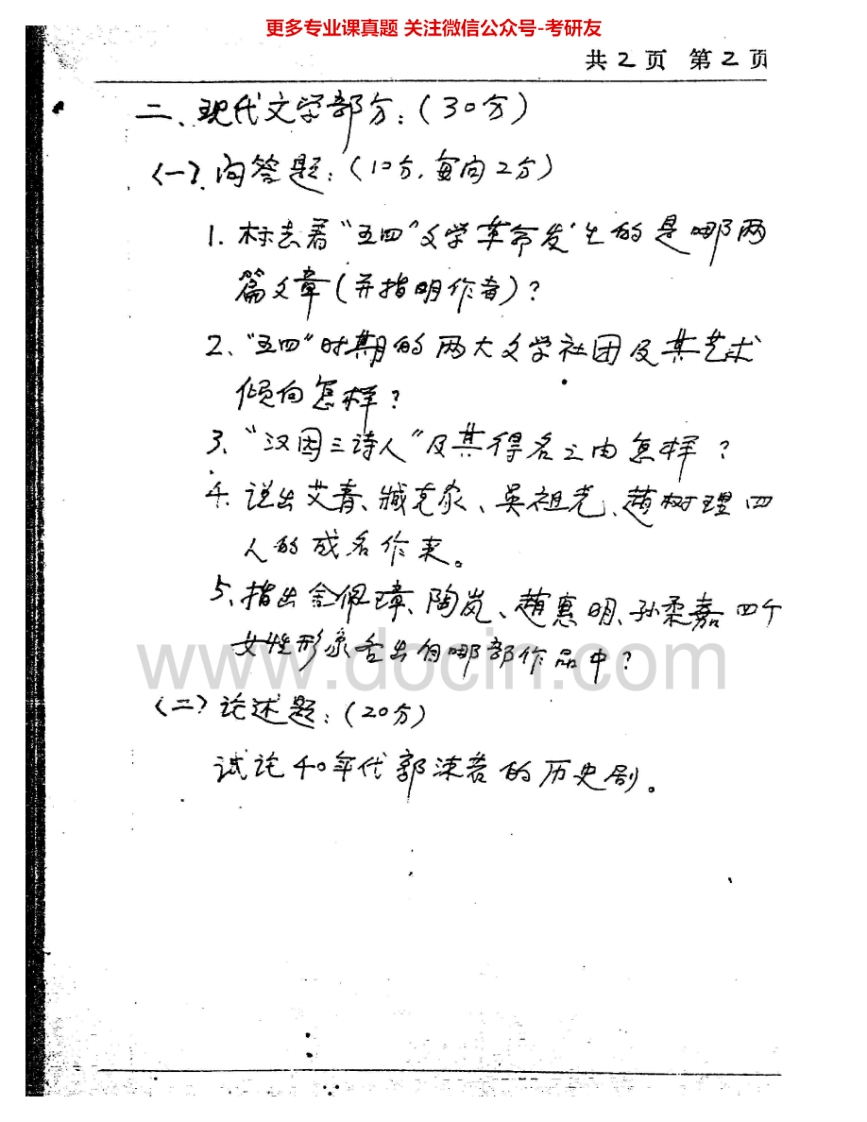 更多专业课真题 关注微信公众号-考研友
共2页 第2页
二、现代文学部分:(30分)
(一)、问答题:(10分,每问2分)
1. 标志着“五四”文学革命发生的是哪两
篇文章(并指明作者)?
2、“五四”时期的两大文学社团及其艺术
倾向怎样?
3、“汉园三诗人”及其得名之由怎样?
4. 说出艾青、臧克家、吴祖光、赵树理四
人的成名作来。
5、指出金佩璋、陶岚、赵惠明、孙柔嘉四个
女性形象各出自哪部作品中?
www.docin.com
(二)论述题:(20分)
试论40年代郭沫若的历史剧。